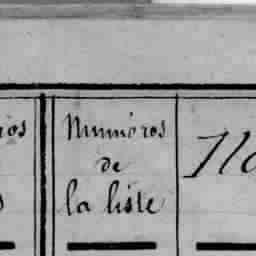 Numéros
de
la liste